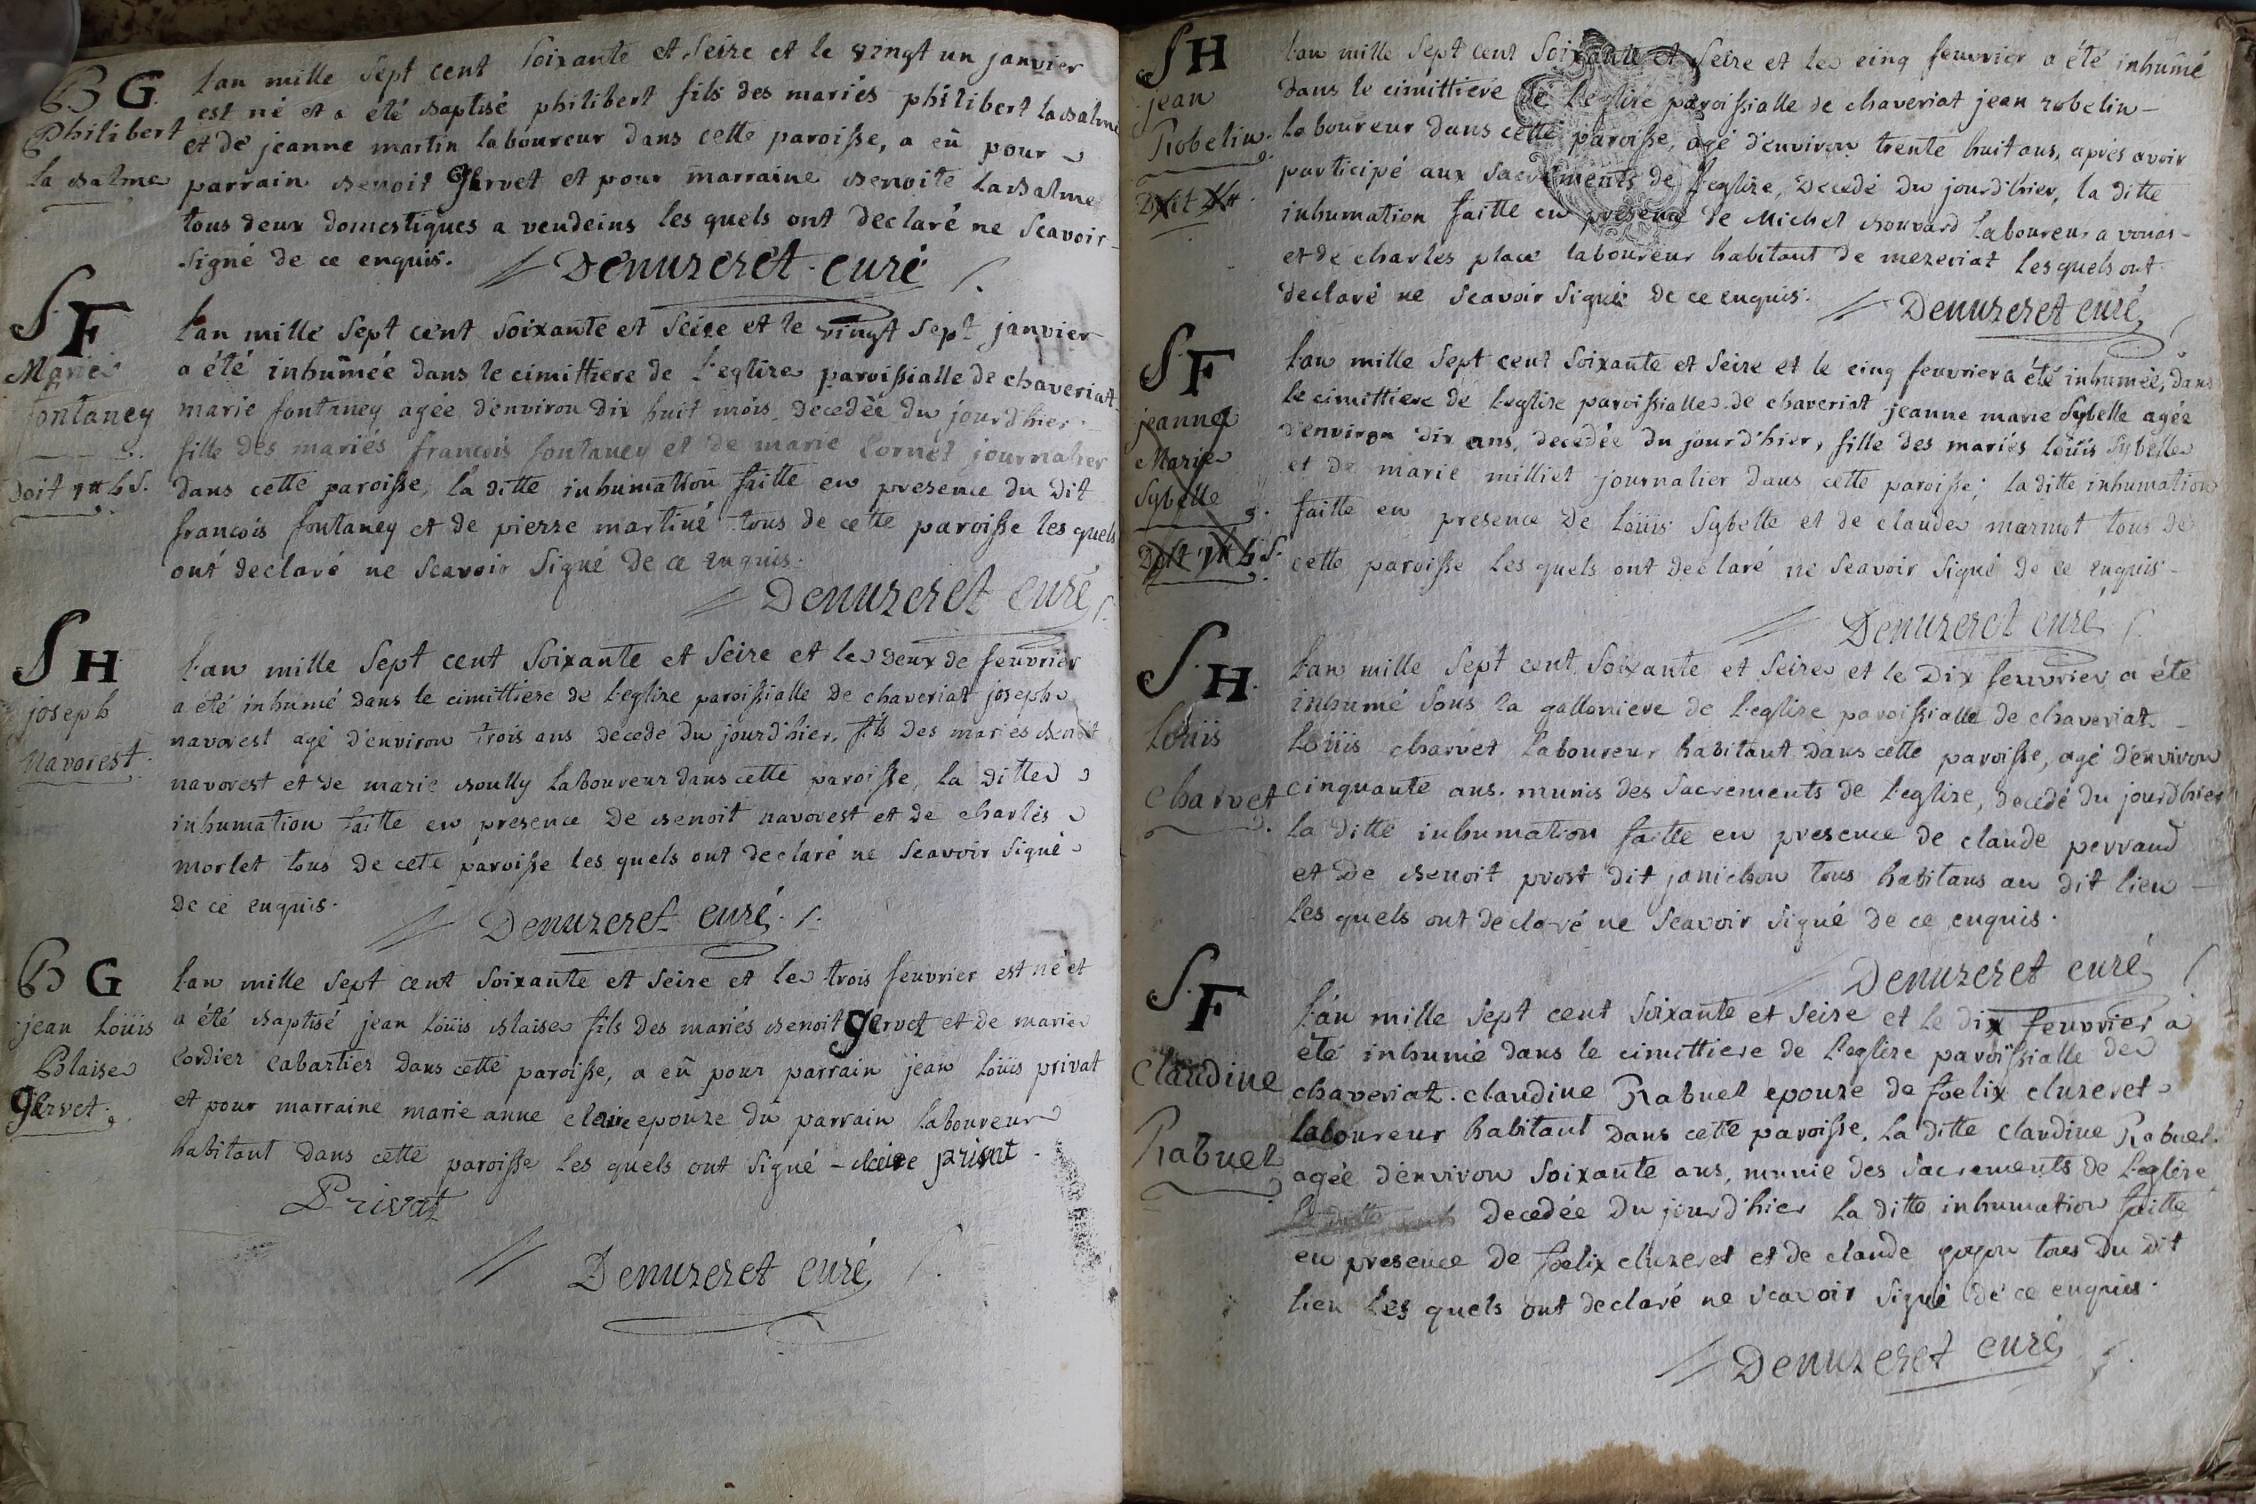 B G
Philibert
la Balme
L'an mille Sept cent Soixante et Seize et le vingt un janvier
est né et a été Baptisé philibert fils des mariés philibert la Balme
et de jeanne martin laboureur dans cette paroisse, a eû pour
parrain Benoit gervet et pour marraine Benoite la Balme
tous deux domestiques a vendeins les quels ont declaré ne Scavoir
Signé de ce enquis. Denuzeret curé
S. F
Marie
fontaney
Doit
L'an mille Sept cent Soixante et Seize et le vingt Sept janvier
a été inhumée dans le cimittiere de L'eglize paroissialle de chaveriat
marie fontaney agée d'environ dix huit mois decedée du jourd'hier
fille des mariés francois fontaney et de marie Cornet journalier
dans cette paroisse, la ditte inhumation faitte en presence du dit
francois fontaney et de pierre martine tous de cette paroisse les quels
ont declaré ne Scavoir Signé de ce enquis.
Denuzeret curé
S H
joseph
Navorest
L'an mille Sept cent Soixante et Seize et le deux de feuvrier
a été inhumé dans le cimittiere de L'eglize paroissialle de chaveriat joseph
navorest agé d'environ trois ans decedé du jourd'hier, fils des mariés Benoit
navorest et de marie Boully Laboureur dans cette paroisse, la ditte
inhumation faitte en presence de Benoit navorest et de charles
morlet tous de cete paroisse les quels ont declaré ne Scavoir Signé
de ce enquis.
Denuzeret curé.
B G
jean Loüis
Blaise
gervet.
L'an mille Sept cent Soixante et Seize et le trois feuvrier est né et
a été Baptisé jean Loüis Blaise fils des mariés Benoit gervet et de marie
Cordier Cabartier Dans cette paroisse, a eû pour parrain jean Loüis privat
et pour marraine marie anne claire epouze du parrain laboureur
habitant dans cette paroisse les quels ont Signé - claire privat -
Privat
Denuzeret curé
S H
jean
Robelin.
L'an mille Sept cent Soixante et Seize et le cinq feuvrier a été inhumé
dans le cimittiere de L'eglize paroissialle de chaveriat jean robelin
laboureur dans cette paroisse, agé d'environ trente huit ans, après avoir
participé aux Sacrements de L'eglize, Decedé Du jourd'hier, la ditte
inhumation faitte en presence de Michel Bouvard Laboureur a vonas
et de charles place laboureur habitant de mezeriat Lesquels ont
declaré ne Scavoir Signé de ce enquis.
Denuzeret curé
S. F
jeanne
Marie
Sybelle
L'an mille Sept cent Soixante et Seize et le cinq feuvrier a été inhumée, dans
le cimittiere de L'eglize paroissialle de chaveriat jeanne marie Sybelle agée
d'environ dix ans, decedée du jourd'hier, fille des mariés Loüis Sybelle
et de marie milliet journalier dans cette paroisse; la ditte inhumation
faitte en presence de Loüis Sybelle et de claude marmot tous de
cette paroisse les quels ont declaré ne Scavoir Signé de ce enquis
Denuzeret curé
S. H.
Loüis
charvet
L'an mille Sept cent Soixante et Seize et le Dix feuvrier a été
inhumé Sous la galloniere de L'eglize paroissialle de chaveriat
Loüis charvet Laboureur habitant dans cette paroisse, agé d'environ
cinquante ans. munis des Sacrements de L'eglize, decedé du jourd'hier
la ditte inhumation faitte en presence de claude perraud
et De Benoit prost dit janichon tous habitans au dit lieu
les quels ont declaré ne Scavoir Signé de ce enquis.
Denuzeret curé
S. F
Claudine
Rabuel
L'an mille Sept cent Soixante et Seize et le dix feuvrier a
été inhumé dans le cimittiere de L'eglize paroissialle de
chaveriat. claudine Rabuel epouze de foelix cluzeret
laboureur habitant Dans cette paroisse. La ditte claudine Rabuel.
agée d'environ Soixante ans, munie des Sacrements de L'eglize,
decedée Du jourd'hier la ditte inhumation faitte
en presence de foelix cluzeret et de claude goyon tous Du dit
lieu Les quels ont declaré ne Scavoir Signé de ce enquis.
Denuzeret curé